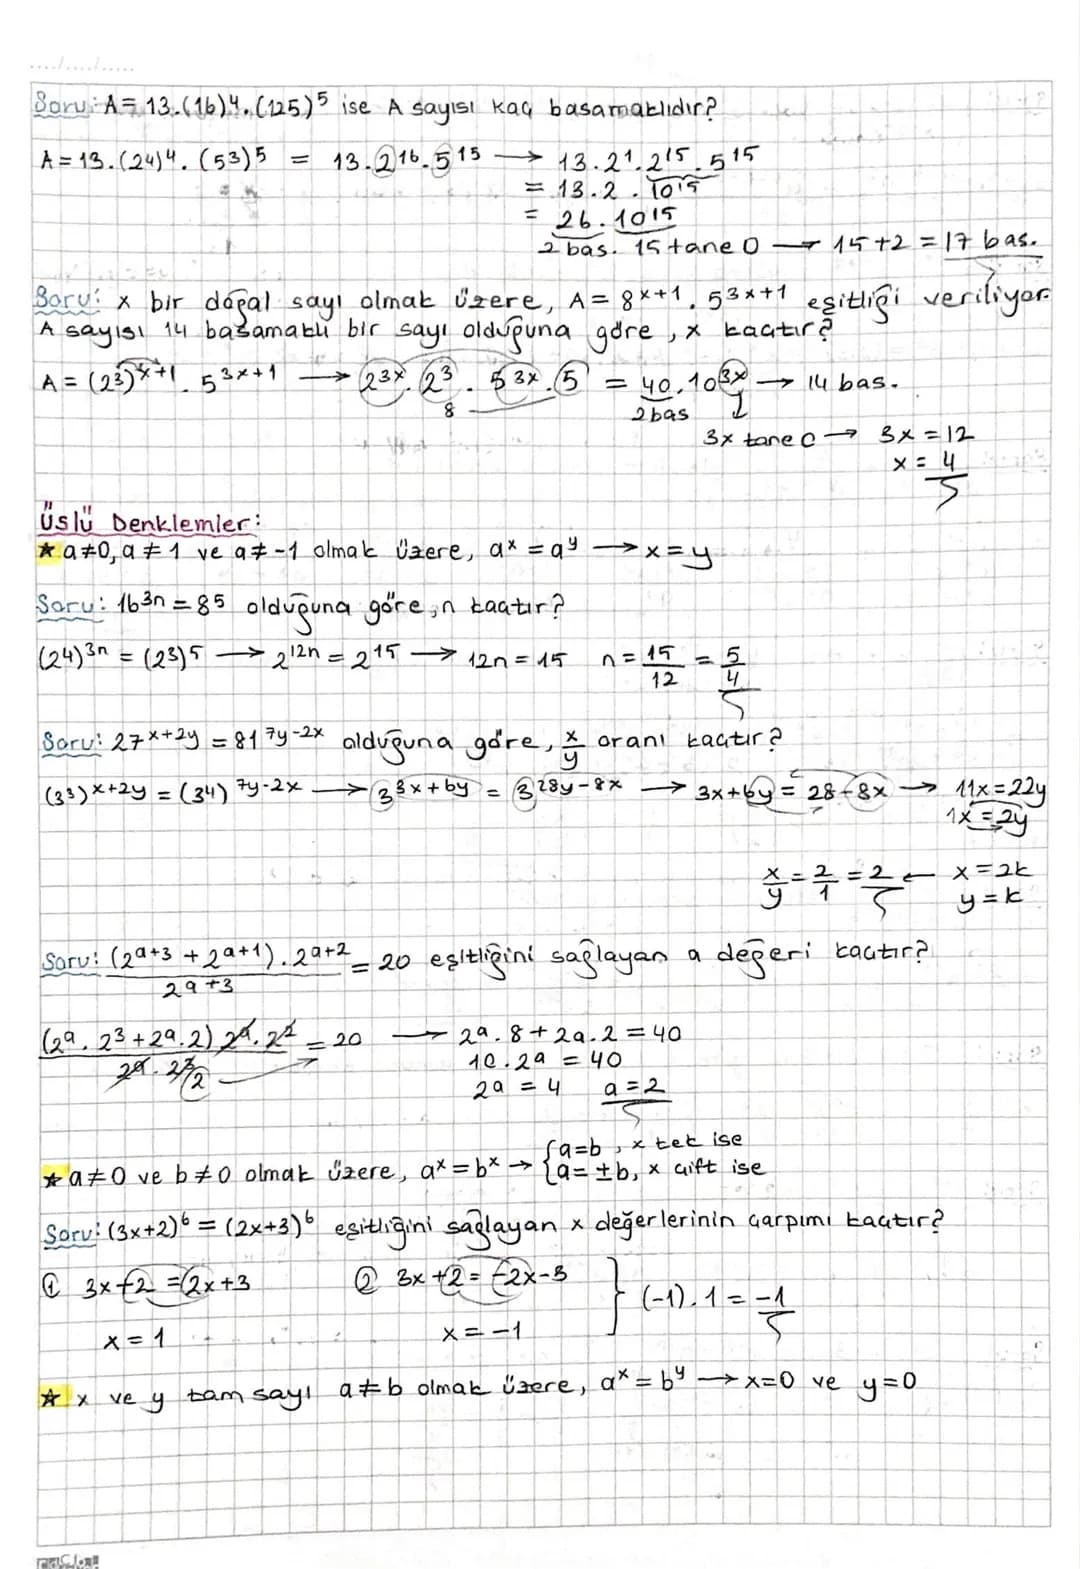 ..../..../.....
Soru: A = 13.(16)⁴.(125)⁵ ise A sayısı kaç basamaklıdır?
A = 13.(2⁴)⁴.(5³)⁵ = 13.2¹⁶.5¹⁵ → 13.2¹.2¹⁵.5¹⁵
= 13.2.10¹⁵
= 26.10¹⁵
2 bas. 15 tane 0 → 15+2 = 17 bas.
Soru: x bir doğal sayı olmak üzere, A = 8ˣ⁺¹.5³ˣ⁺¹ eşitliği veriliyor.
A sayısı 14 basamaklı bir sayı olduğuna göre, x kaçtır?
A = (2³)ˣ⁺¹.5³ˣ⁺¹ → 2³ˣ.2³.5³ˣ.5 = 40.10³ˣ → 14 bas.
8 2bas ↓
3x tane 0 → 3x = 12
x = 4
Üslü Denklemler:
★ a≠0, a≠1 ve a≠-1 olmak üzere, aˣ = aʸ → x = y
Soru: 16³ⁿ = 8⁵ olduğuna göre, n kaçtır?
(2⁴)³ⁿ = (2³)⁵ → 2¹²ⁿ = 2¹⁵ → 12n = 15 n = 15/12 = 5/4
Soru: 27ˣ⁺²ʸ = 81⁷ʸ⁻²ˣ olduğuna göre, x/y oranı kaçtır?
(3³)ˣ⁺²ʸ = (3⁴)⁷ʸ⁻²ˣ → 3³ˣ⁺⁶ʸ = 3²⁸ʸ⁻⁸ˣ → 3x+6y = 28-8x → 11x = 22y
1x = 2y
x/y = 2/1 = 2 ← x = 2k
y = k
Soru: (2ᵃ⁺³ + 2ᵃ⁺¹).2ᵃ⁺² / 2ᵃ⁺³ = 20 eşitliğini sağlayan a değeri kaçtır?
(2ᵃ.2³ + 2ᵃ.2) 2ᵃ.2² / 2ᵃ.2³ 2 = 20 → 2ᵃ.8 + 2ᵃ.2 = 40
10.2ᵃ = 40
2ᵃ = 4 a = 2
★ a≠0 ve b≠0 olmak üzere, aˣ = bˣ → { a=b, x tek ise
a = ±b, x çift ise
Soru: (3x+2)⁶ = (2x+3)⁶ eşitliğini sağlayan x değerlerinin çarpımı kaçtır?
① 3x+2 = 2x+3 ② 3x+2 = -2x-3 } (-1).1 = -1
x = 1 x = -1
★ x ve y tam sayı a≠b olmak üzere, aˣ = bʸ → x=0 ve y=0